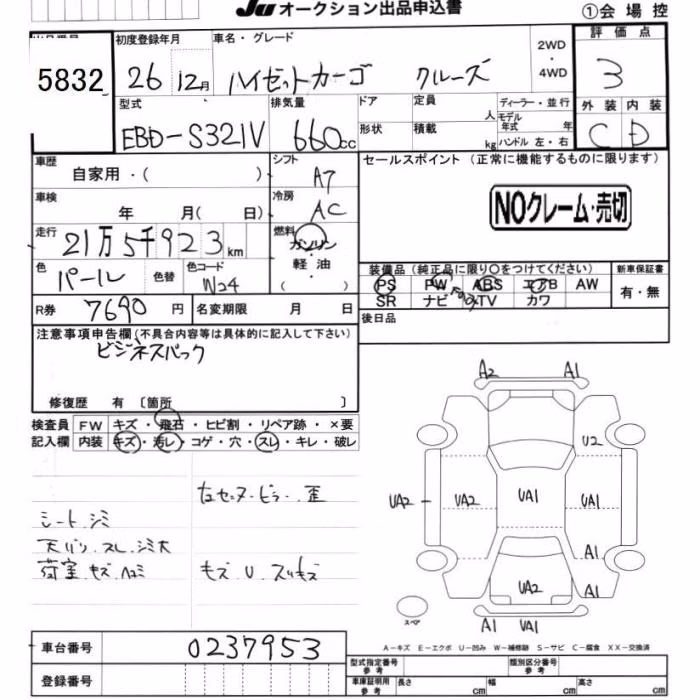 JU オークション出品申込書 ①会場控
出品番号 初度登録年月 車名・グレード 2WD・4WD 評価点
5832 26 12月 ハイゼットカーゴ クルーズ 3
型式 排気量 ドア 定員 人 ディーラー・並行 外装 内装
EBD-S321V 660cc 形状 積載 kg モデル年式 年 C D
ハンドル 左・右
車歴 自家用・( ) シフト A7 セールスポイント (正常に機能するものに限ります)
車検 年 月( 日) 冷房 AC NOクレーム・売切
走行 21万5千923km 燃料 ガソリン・軽油・
色 パール 色替 色コード W24 装備品 (純正品に限り○をつけてください) 新車保証書
PS PW ABS エアB AW 有・無
R券 7690円 名変期限 月 日 SR ナビ TV カワ
注意事項申告欄 (不具合内容等は具体的に記入して下さい) 後日品
ビジネスパック
修復歴 有 〔箇所 〕
検査員 FW キズ・飛石・ヒビ割・リペア跡・×要
記入欄 内装 キズ・汚レ・コゲ・穴・スレ・キレ・破レ
A2 A1
U2
右センターピラー歪
UA2 UA2 UA1 UA1
シート.シミ
天バリ.スレ.シミ大 A1
荷室.キズ.ヘコミ キズ U スリキズ
UA2 A1
スペア A1 UA1
A-キズ E-エクボ U-凹み W-補修跡 S-サビ C-腐食 XX-交換済
車台番号 0237953
型式指定番号 参考 類別区分番号 参考
登録番号 車庫証明用 参考 長さ cm 幅 cm 高さ cm